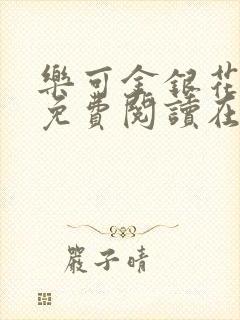 樂可金銀花
免費閱讀在
嚴子晴